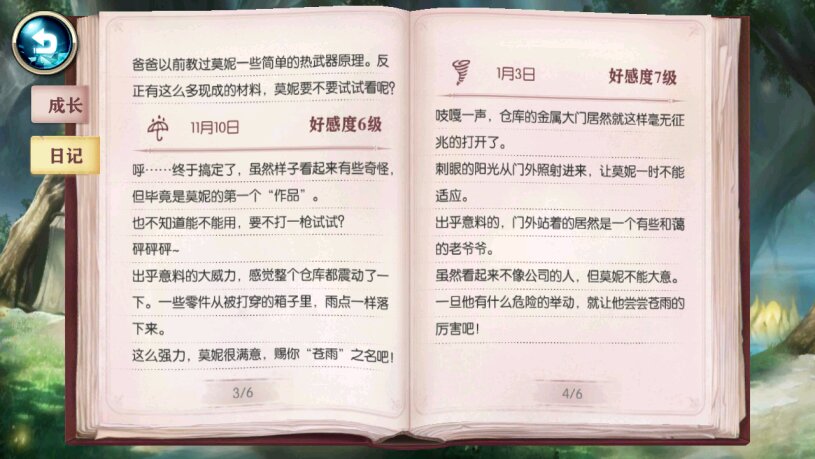 成长
日记
爸爸以前教过莫妮一些简单的热武器原理。反
正有这么多现成的材料，莫妮要不要试试看呢？
11月10日 好感度6级
呼……终于搞定了，虽然样子看起来有些奇怪，
但毕竟是莫妮的第一个“作品”。
也不知道能不能用，要不打一枪试试？
砰砰砰~
出乎意料的大威力，感觉整个仓库都震动了一
下。一些零件从被打穿的箱子里，雨点一样落
下来。
这么强力，莫妮很满意，赐你“苍雨”之名吧！
3/6
1月3日 好感度7级
吱嘎一声，仓库的金属大门居然就这样毫无征
兆的打开了。
刺眼的阳光从门外照射进来，让莫妮一时不能
适应。
出乎意料的，门外站着的居然是一个有些和蔼
的老爷爷。
虽然看起来不像公司的人，但莫妮不能大意。
一旦他有什么危险的举动，就让他尝尝苍雨的
厉害吧！
4/6